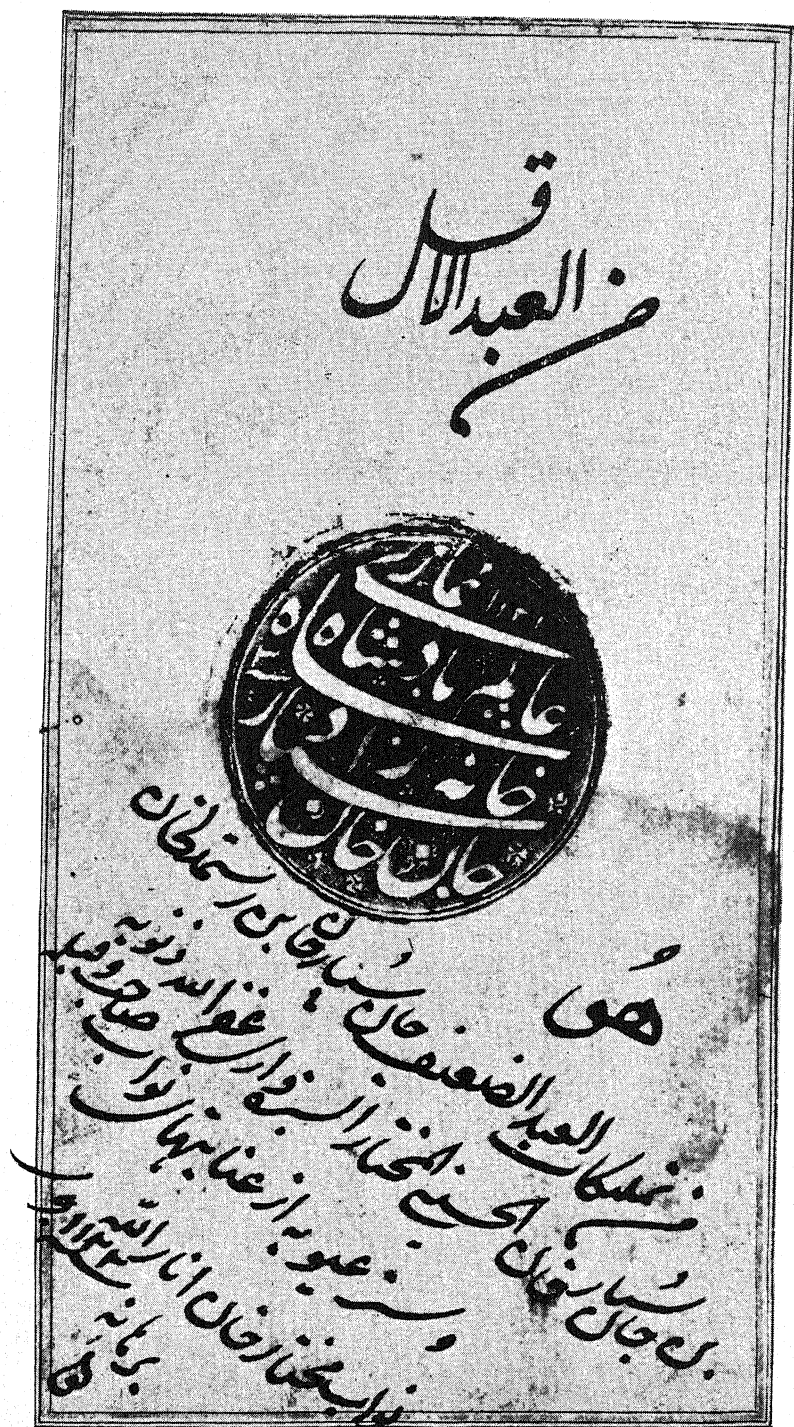 من العبد الاقل
۱۱۲۱
عالمگیر بادشاه
خانه زاد
جان خان
هُو
من تملکات العبد الضعیف جان سپار خان بن رستم خان
بن جان سپار خان الحسینی المختار السبزواری غفر الله ذنوبه
و ستر عیوبه از عنایتهای نواب صاحب و قبله
نواب مختار خان انار الله
برهانه
۱۱۲۲